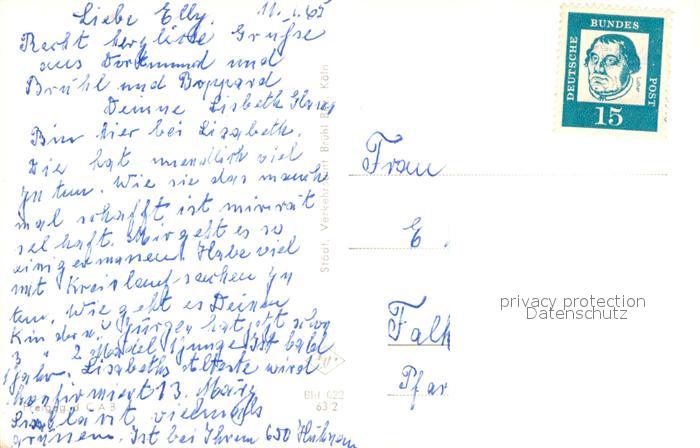 Liebe Elly. 11.
Recht herzliche Grüße
aus Dortmund und
Brühl und Boppard
Deinne Lisbeth
Bin hier bei Lisabeth.
Die hat unendlich viel
zu tun. Wie sie das manch
mal schafft ist mir rät
selhaft. Mir geht es so
einigermassen. Habe viel
mit Kreislauf-sachen zu
tun. Wie geht es Deinen
Kindern? Jürgen hat jetzt schon
3 " 2 Mädel 1 Junge ist bald
1 Jahr. Lisabeths älteste wird
konfirmiert 13. März
lässt vielmals
grüssen. Ist bei Ihrem 650 Hühner
Städt. Verkehrsamt Brühl Köln
Bld 622
63/2
DEUTSCHE BUNDES POST
Luther
15
Frau
E
Falk
Pfar
privacy protection
Datenschutz